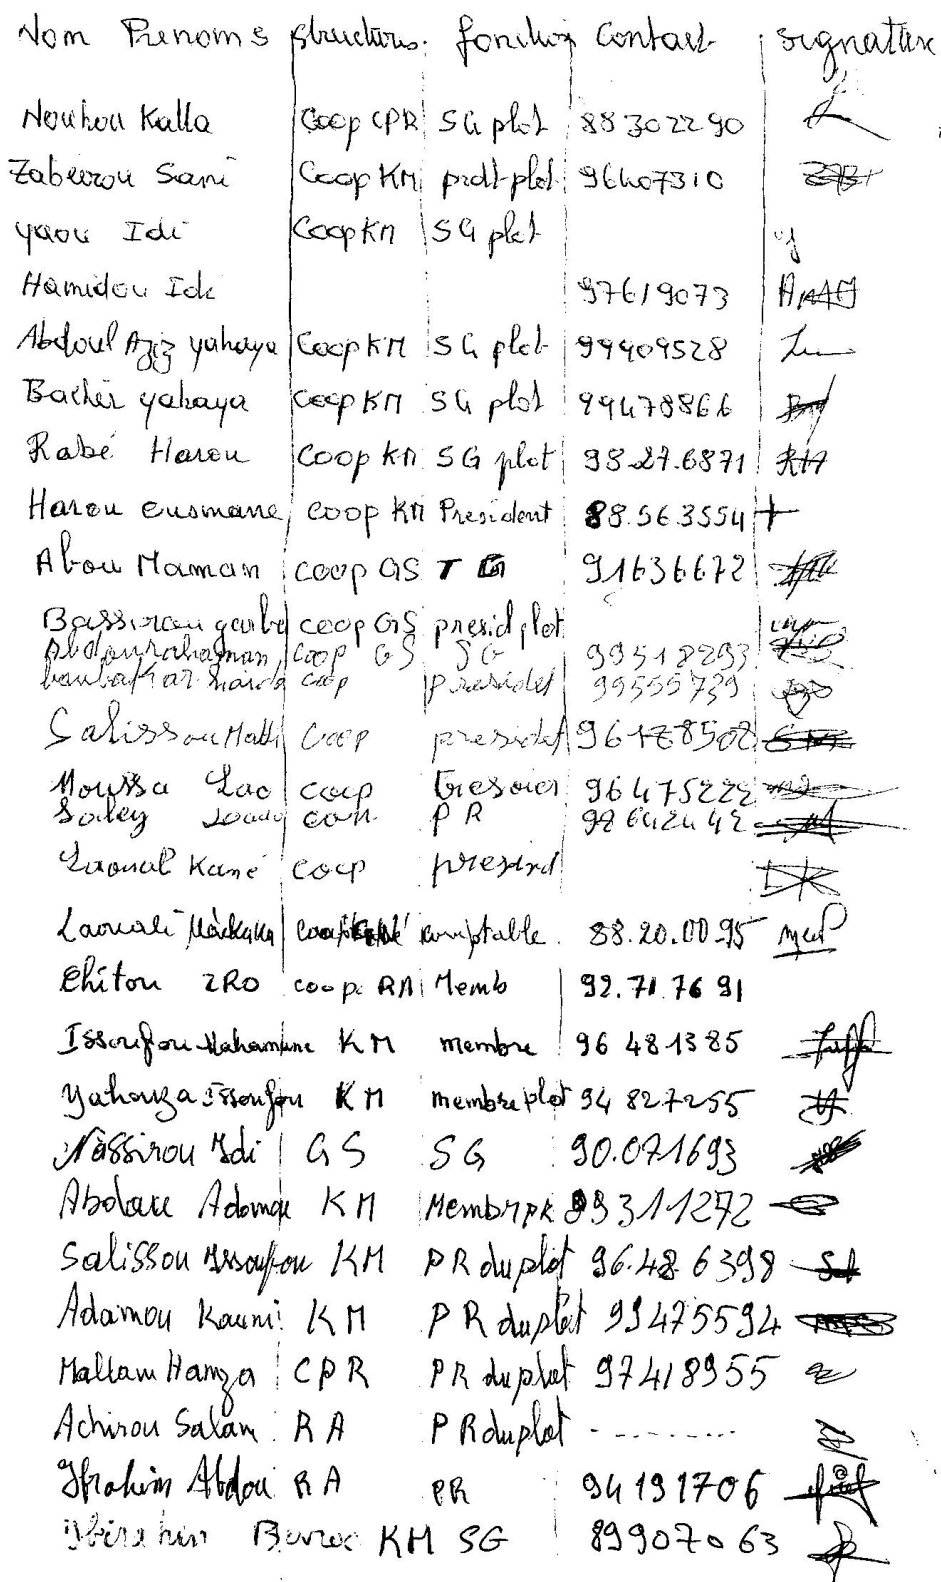 Nom Prenoms structures. fonction Contact signature
Nouhou Kalla Coop CPR SG plot 88302290
Zabeirou Sani Coop KM prdt plot 96407310
yaou Idi Coop KM SG plot
Hamidou Ide 97619073
Abdoul Aziz yahaya Coop KM SG plot 99409528
Bachir yahaya Coop KM SG plot 99478866
Rabé Harou Coop KM SG plot 98.27.6871 RH
Harou ousmane coop KM President 88.56.3554 +
Abou Maman coop GS T G 91636672
Bassirou garba coop GS presid plot
Abdourahaman coop GS SG 99518293
boubakar coop president 99555739
Salissou coop president 96178508
Moussa Lao coop tresorier 96475222
Saley PR 98642442
Laoual Kané coop presind
Laouali comptable. 88.20.00.95
Chitou IRO coop. RA Memb 92.71.76 91
Issoufou Mahamane KM membre 96 481385
Yahouza Issoufou KM membre plot 94 827255
Nassirou Idi GS SG 90.071693
Adamou KM 99311272
Salissou Issoufou KM PR du plot 96.48.6398
Adamou Kauni KM PR du plot 99475594
Mallam Hamza CPR PR du plot 97418955
Achirou Salam RA PR du plot - - - - - - - - -
Ibrahim Abdou RA PR 94191706
KM SG 89907063